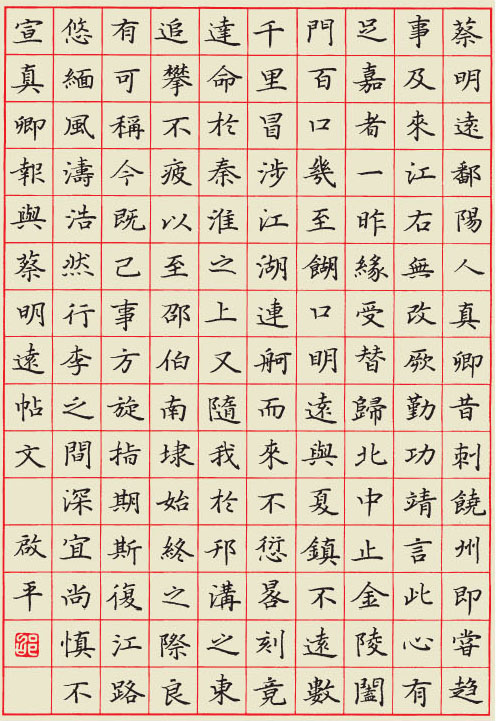 蔡明遠鄱陽人真卿昔刺饒州即嘗趍
事及來江右無改厥勤功靖言此心有
足嘉者一昨緣受替歸北中止金陵闔
門百口幾至餬口明遠與夏鎮不遠數
千里冒涉江湖連舸而來不愆晷刻竟
達命於秦淮之上又隨我於邗溝之東
追攀不疲以至邵伯南埭始終之際良
有可稱今既已事方旋指期斯復江路
悠緬風濤浩然行李之間深宜尚慎不
宣真卿報與蔡明遠帖文 啟平